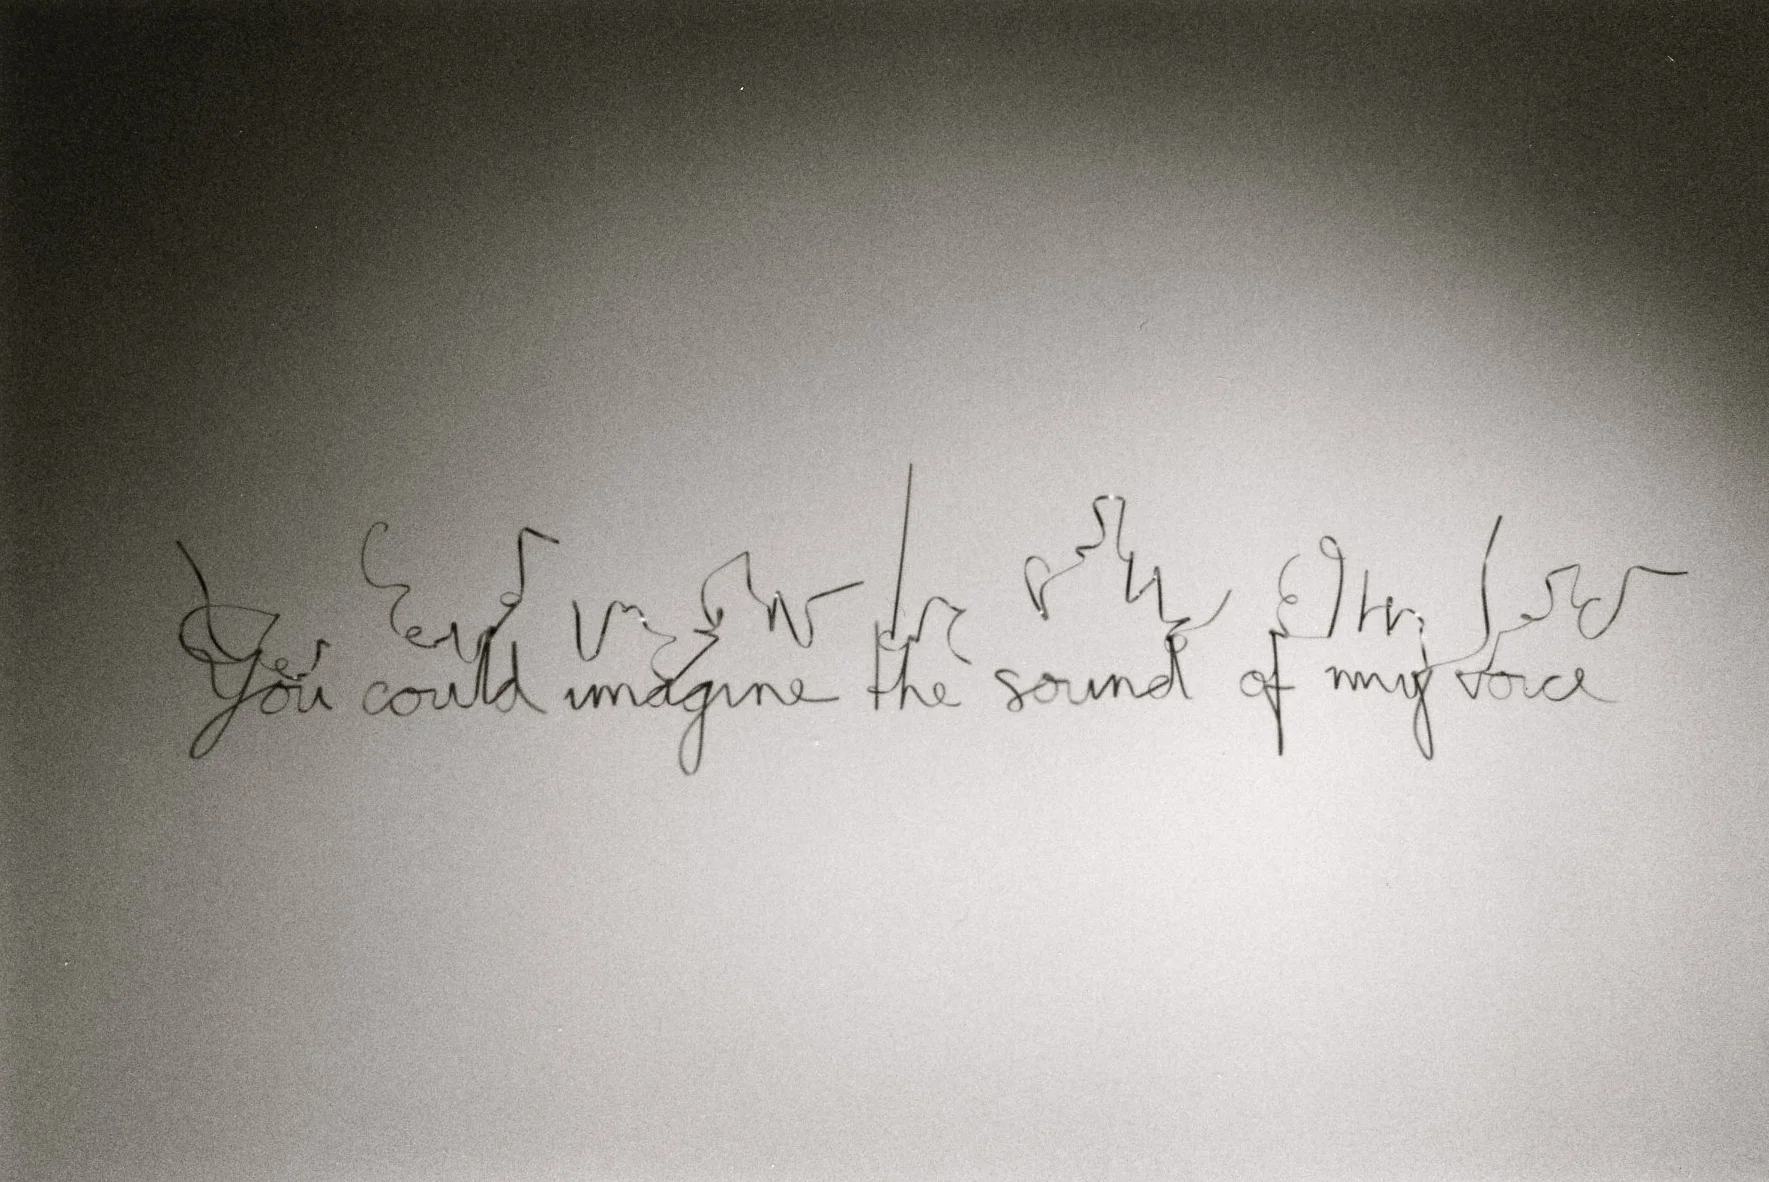 You could imagine the sound of my voice